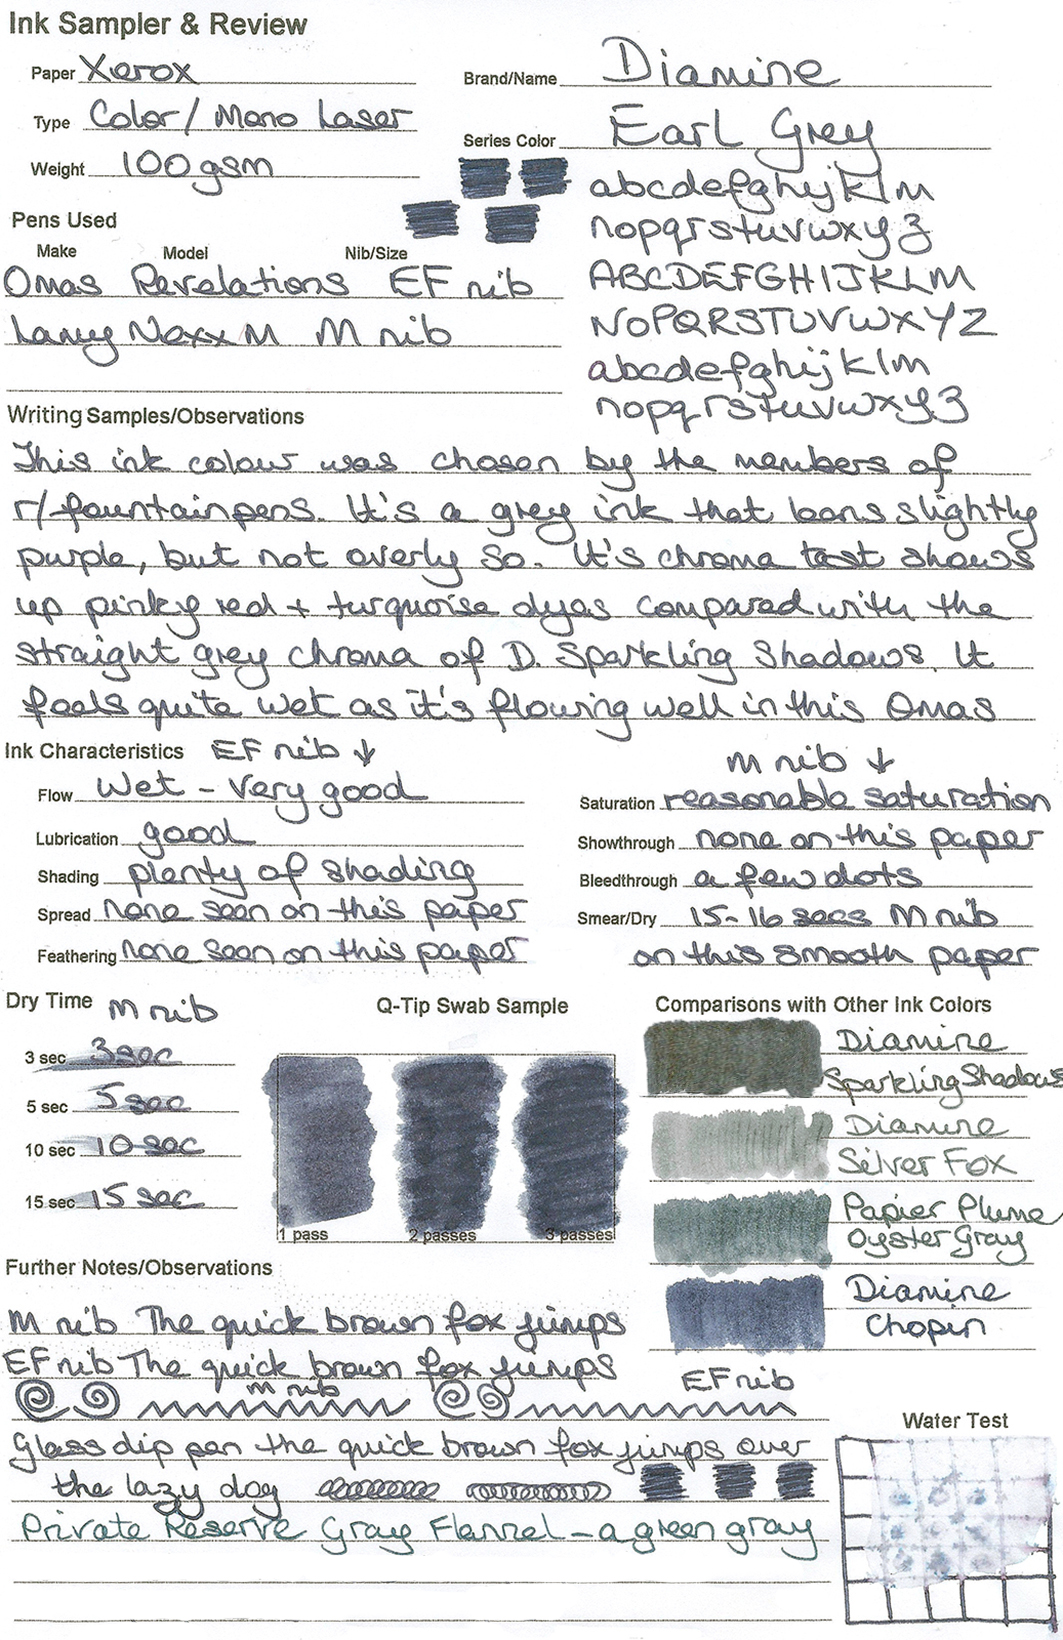 Ink Sampler & Review
Paper Xerox
Type Color/Mono Laser
Weight 100gsm
Brand/Name Diamine
Series Color Earl Grey
abcdefghijklm
nopqrstuvwxyz
ABCDEFGHIJKLM
NOPQRSTUVWXYZ
abcdefghijklm
nopqrstuvwxyz
Pens Used
Make Model Nib/Size
Omas Revelations EF nib
Lamy Nexx M M nib
Writing Samples/Observations
This ink colour was chosen by the members of
r/fountainpens. It's a grey ink that leans slightly
purple, but not overly so. It's chroma test shows
up pinky red + turquoise dyes compared with the
straight grey chroma of D. Sparkling Shadows. It
feels quite wet as it's flowing well in this Omas
Ink Characteristics EF nib ↓
M nib ↓
Flow Wet - Very good
Lubrication good
Shading plenty of shading
Spread none seen on this paper
Feathering none seen on this paper
Saturation reasonable saturation
Showthrough none on this paper
Bleedthrough a few dots
Smear/Dry 15-16 secs M nib
on this smooth paper
Dry Time M nib
3 sec 3 sec
5 sec 5 sec
10 sec 10 sec
15 sec 15 sec
Q-Tip Swab Sample
1 pass 2 passes 3 passes
Comparisons with Other Ink Colors
Diamine
Sparkling Shadows
Diamine
Silver Fox
Papier Plume
Oyster Gray
Diamine
Chopin
Further Notes/Observations
M nib The quick brown fox jumps
EF nib The quick brown fox jumps
M nib
EF nib
Glass dip pen the quick brown fox jumps over
the lazy dog
Private Reserve Gray Flannel - a green gray
Water Test